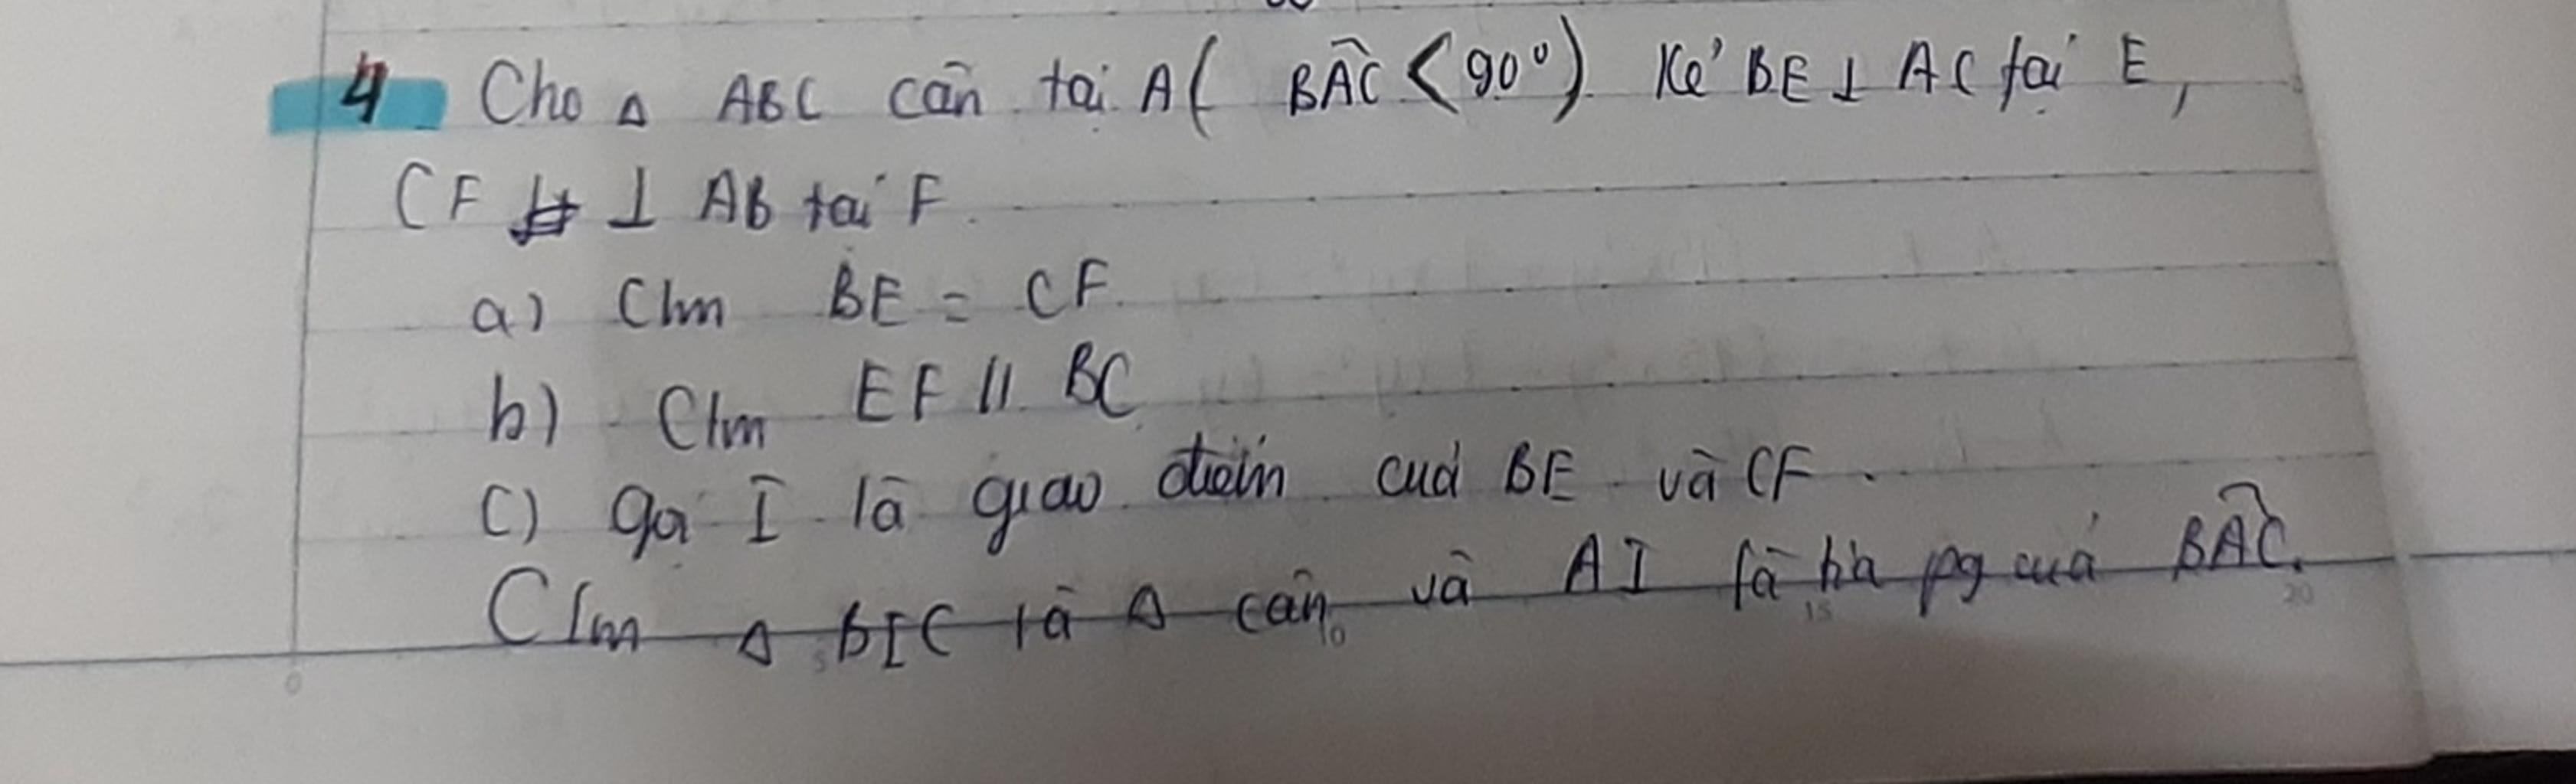 4 Cho △ ABC cân tại A( BÂC < 90°). Kẻ BE ⊥ AC tại E,
CF ⊥ AB tại F.
a) C/m BE = CF.
b) C/m EF // BC
c) gọi I là giao điểm của BE và CF.
C/m △ BIC là △ cân và AI là tia pg của BÂC.
0 5 10 15 20